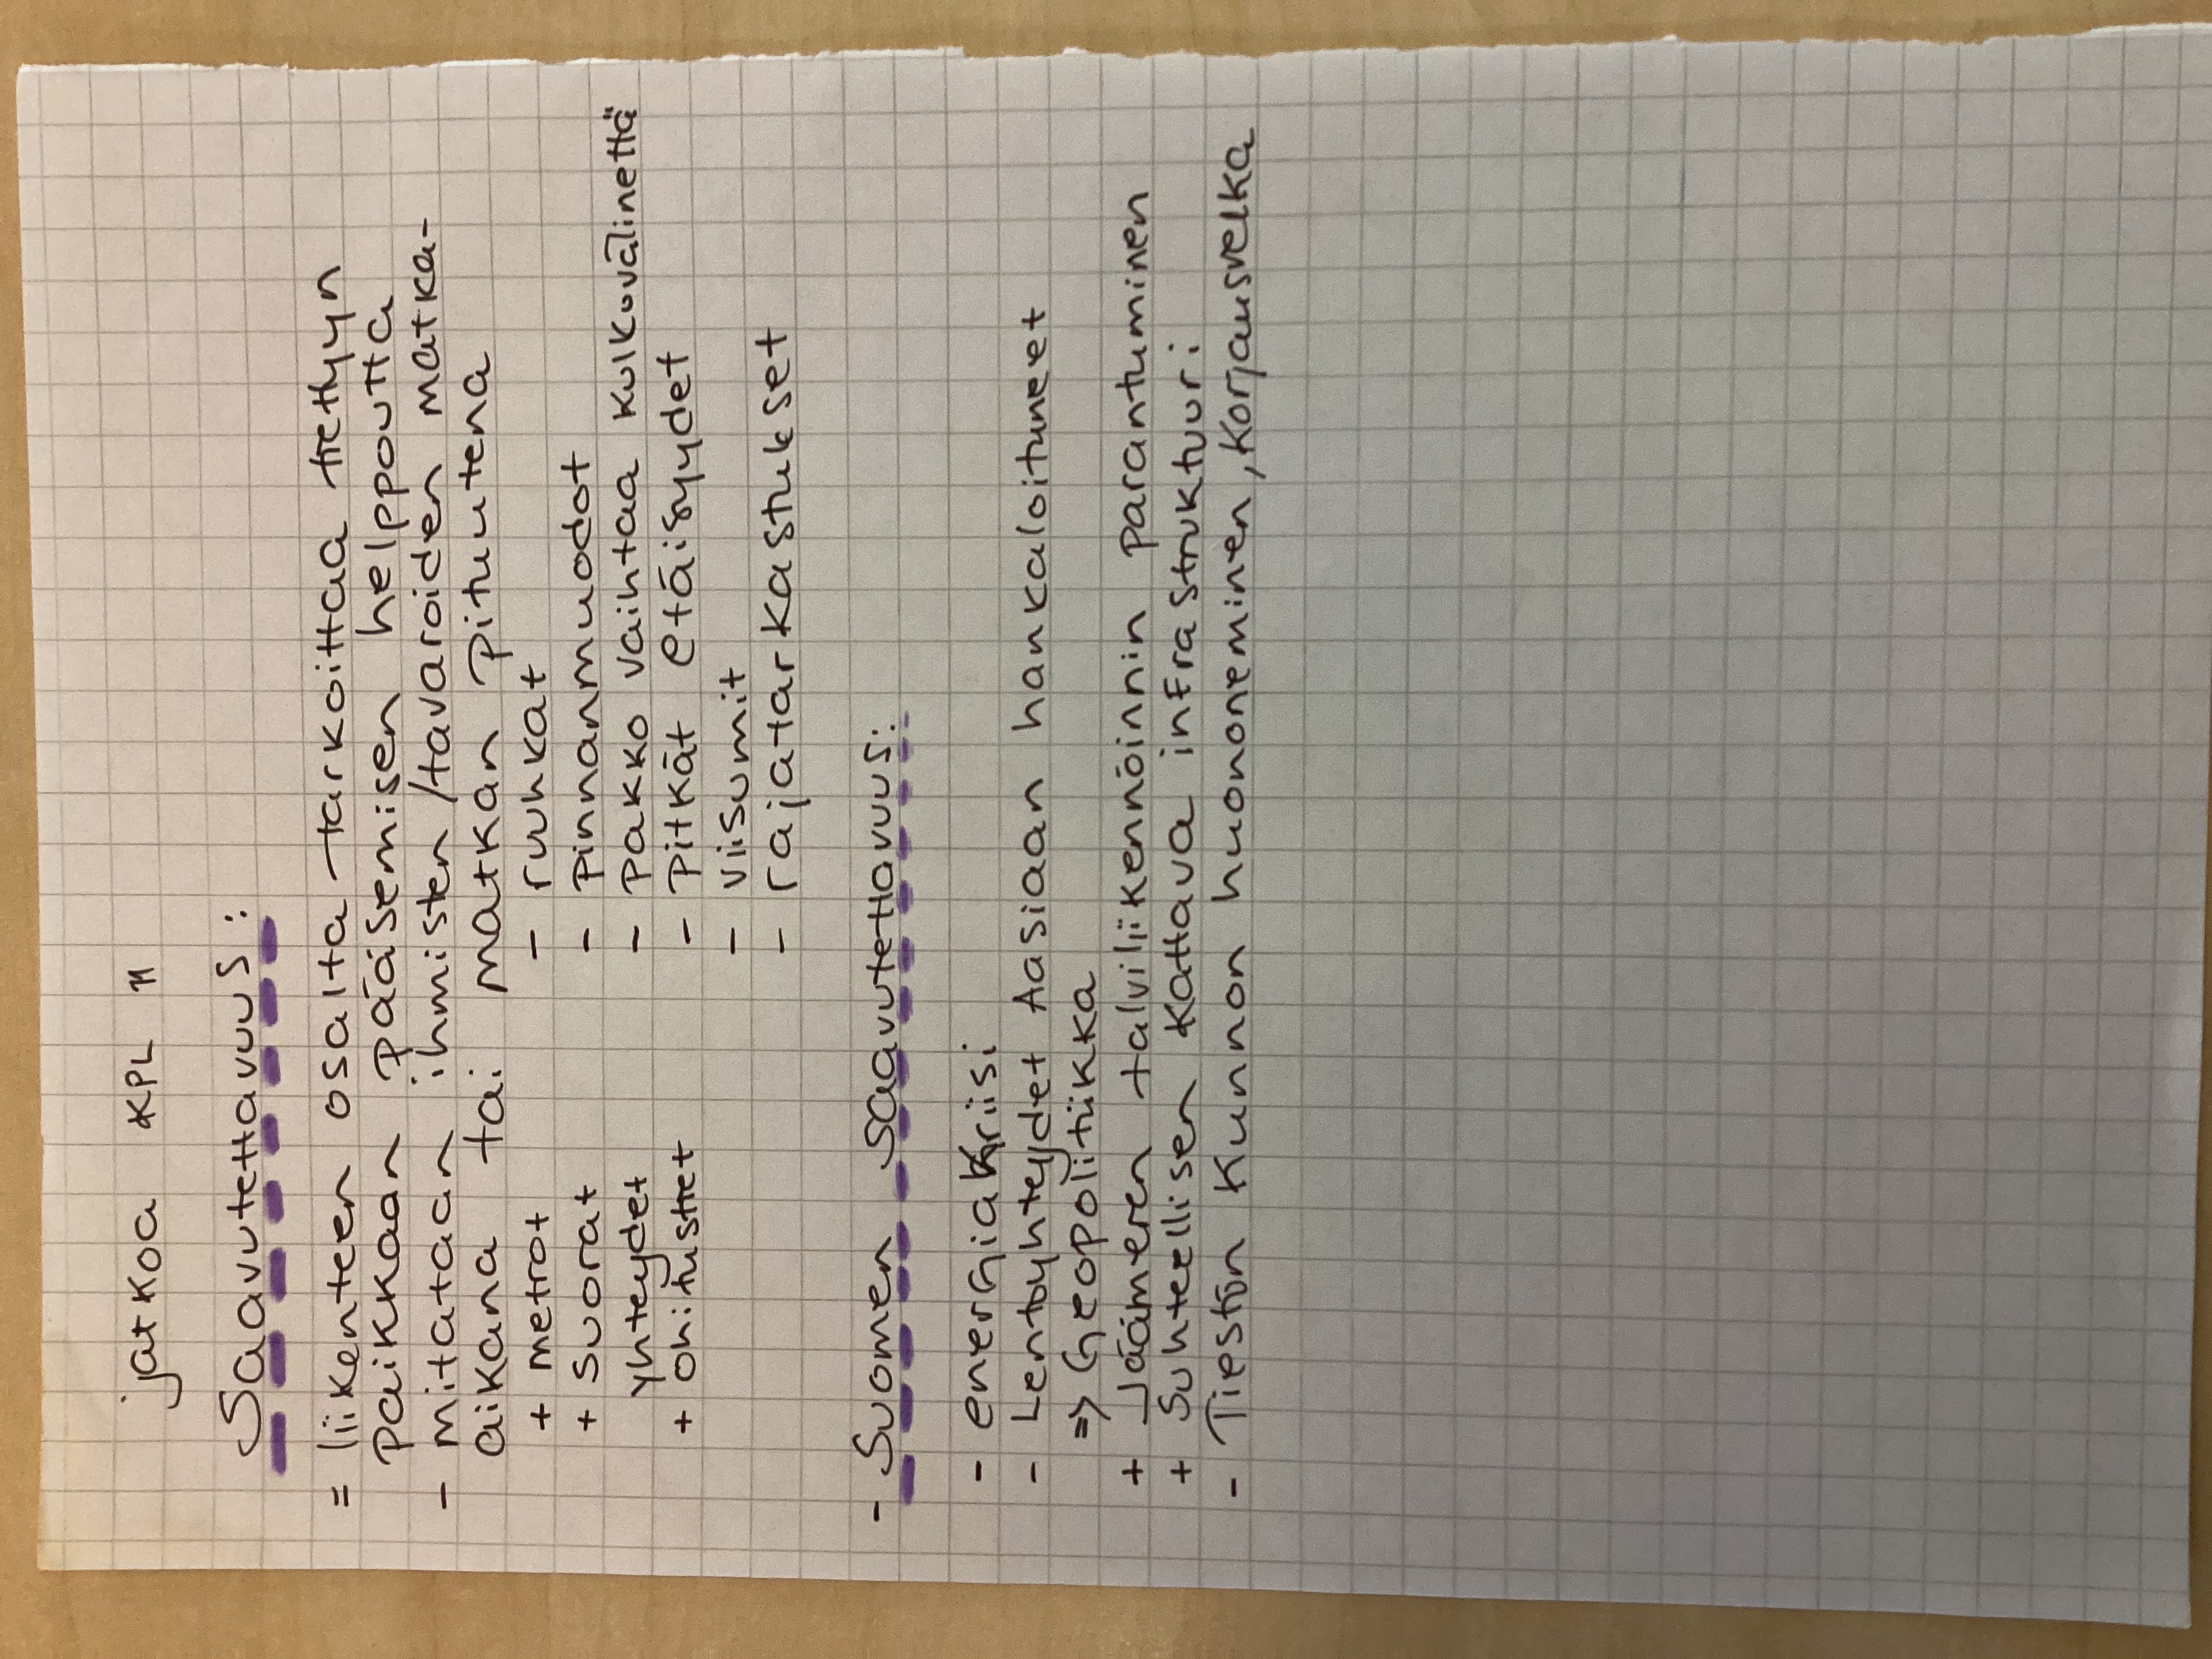 jatkoa KPL 11
Saavutettavuus:
= liikenteen osalta tarkoittaa tiettyyn
paikkaan pääsemisen helppoutta
- mitataan ihmisten/tavaroiden matka-
aikana tai matkan pituutena
+ metrot
+ suorat
yhteydet
+ ohitustiet
- ruuhkat
- pinnanmuodot
- pakko vaihtaa kulkuvälinettä
- pitkät etäisyydet
- viisumit
- rajatarkastukset
- Suomen saavutettavuus:
- energiakriisi
- Lentoyhteydet Aasiaan hankaloituneet
=> Geopolitiikka
+ Jäämeren talviliikennöinnin parantuminen
+ Suhteellisen kattava infrastruktuuri
- Tiestön kunnon huononeminen, korjausvelka